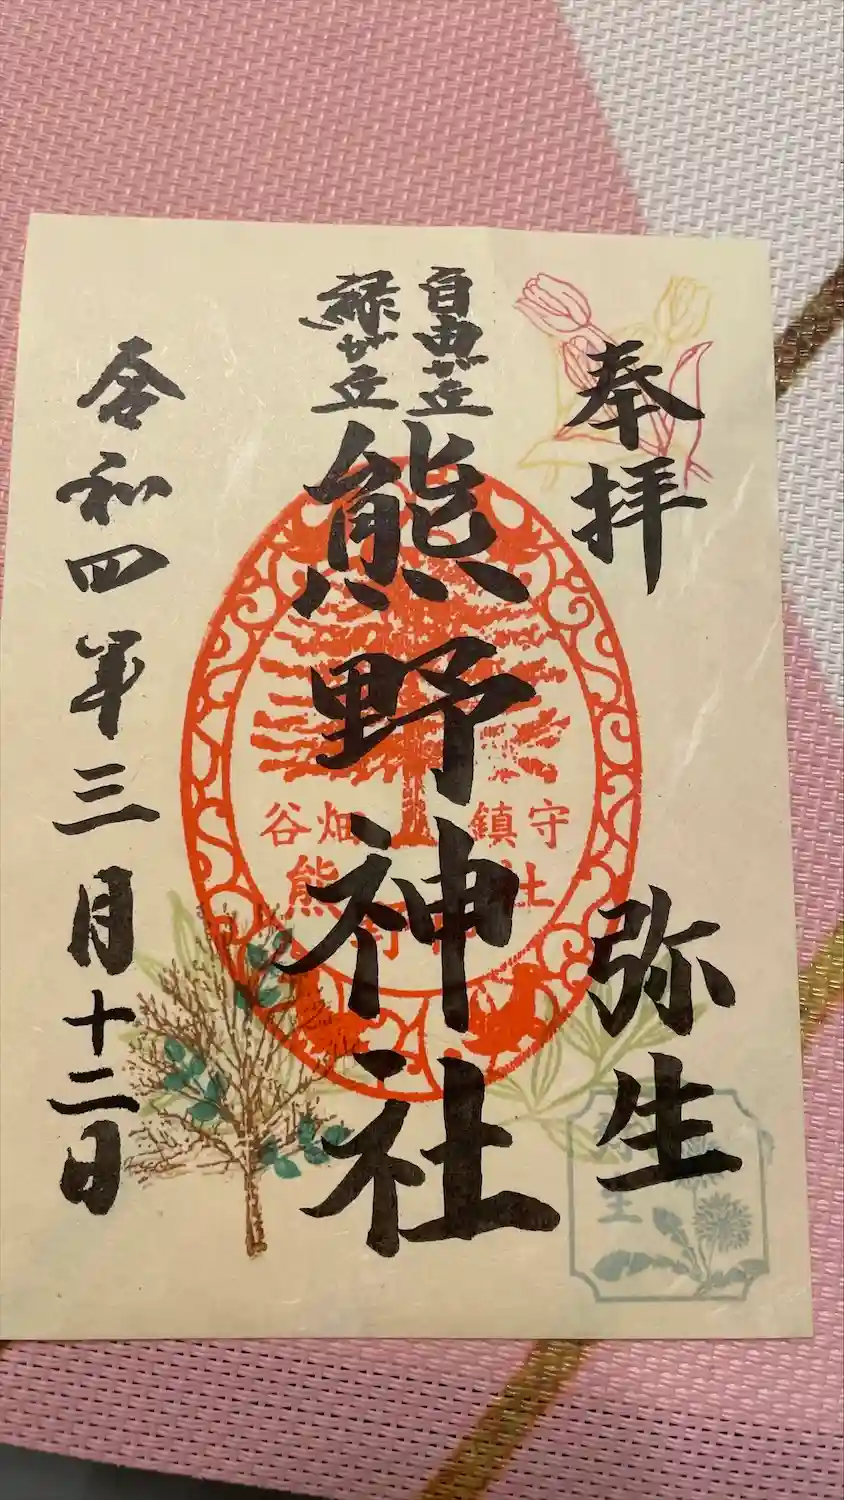 奉拝
弥生
自由が丘
緑が丘
熊野神社
令和四年三月十二日
谷畑
鎮守
弥生